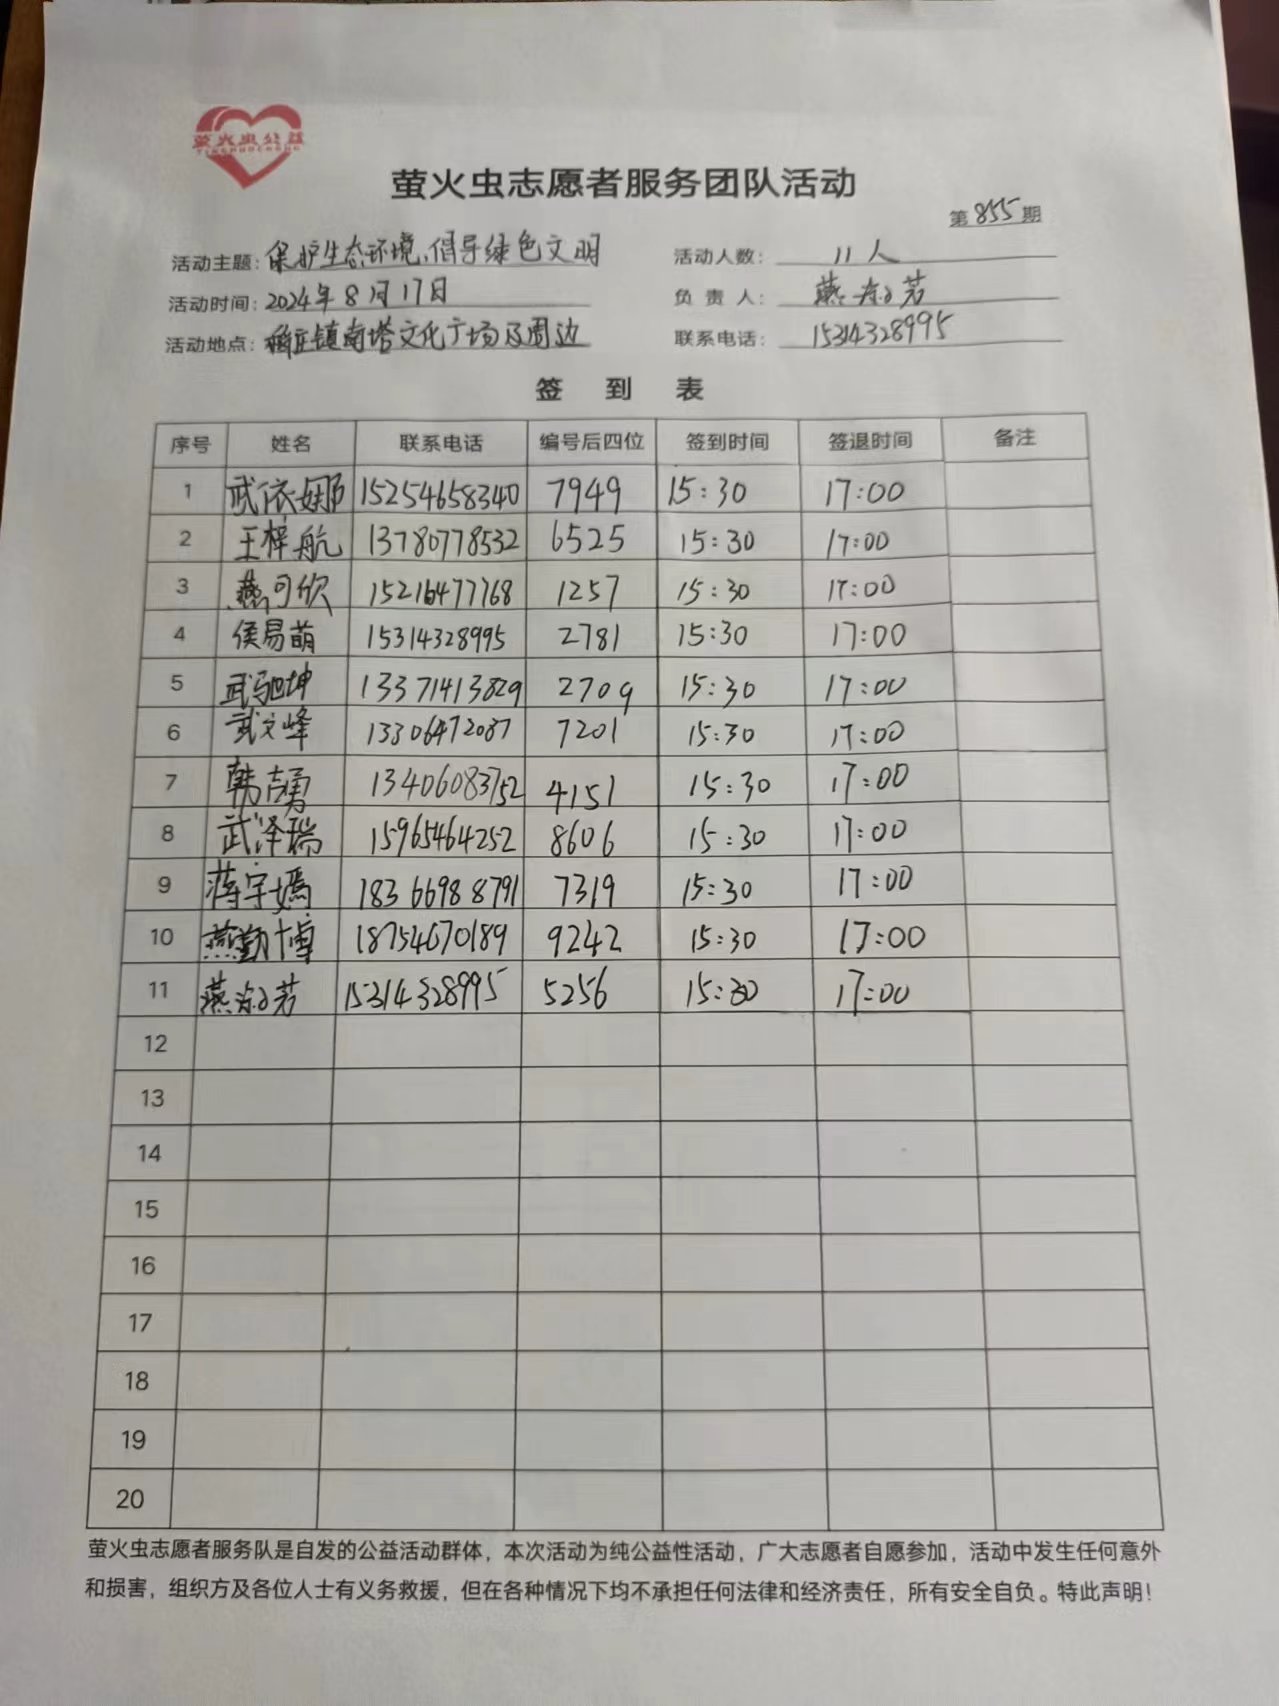 萤火虫公益
YINGHUOCHONG
萤火虫志愿者服务团队活动
第855期
活动主题：保护生态环境，倡导绿色文明 活动人数：11人
活动时间：2024年8月17日 负责人：燕 芳
活动地点：稻庄镇南塔文化广场及周边 联系电话：15314328995
签到表
序号 姓名 联系电话 编号后四位 签到时间 签退时间 备注
1 武依娜 15254658340 7949 15:30 17:00
2 王梓航 13780778532 6525 15:30 17:00
3 燕可欣 15216477768 1257 15:30 17:00
4 侯易萌 15314328995 2781 15:30 17:00
5 武驰坤 13371413829 2709 15:30 17:00
6 武文峰 13306472087 7201 15:30 17:00
7 韩志勇 13406083752 4151 15:30 17:00
8 武泽瑞 15965464252 8606 15:30 17:00
9 蒋宇嫣 18366988791 7319 15:30 17:00
10 燕勤博 18754670189 9242 15:30 17:00
11 燕 芳 15314328995 5256 15:30 17:00
12
13
14
15
16
17
18
19
20
萤火虫志愿者服务队是自发的公益活动群体，本次活动为纯公益性活动，广大志愿者自愿参加，活动中发生任何意外
和损害，组织方及各位人士有义务救援，但在各种情况下均不承担任何法律和经济责任，所有安全自负。特此声明！